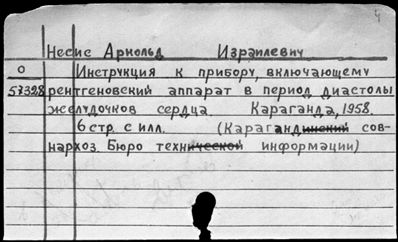 Несис Арнольд Израилевич
О Инструкция к прибору, включающему
57328 рентгеновский аппарат в период диастолы
желудочков сердца. Караганда, 1958.
6 стр. с илл. (Карагандинский сов-
нархоз. Бюро технической информации)